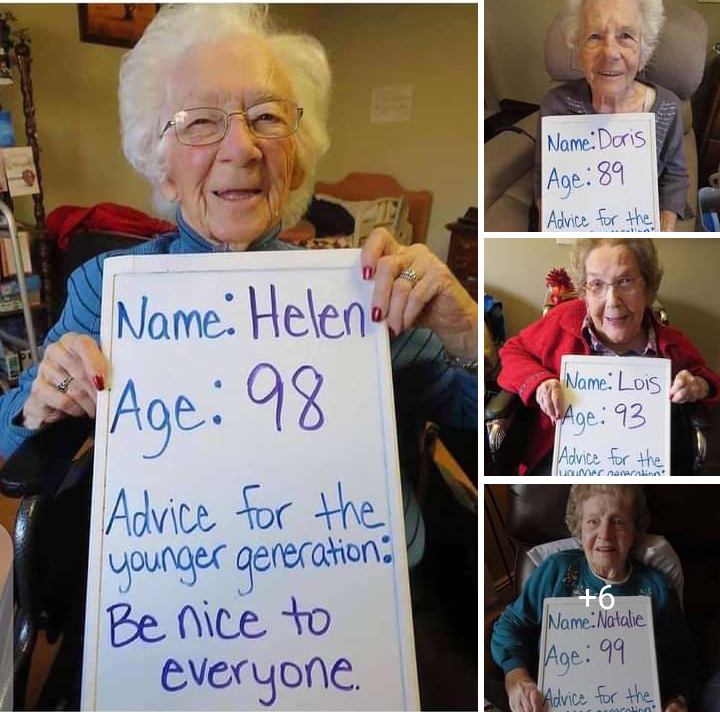 Name: Helen
Age: 98
Advice for the
younger generation:
Be nice to
everyone.
Name: Doris
Age: 89
Advice for the
Name: Lois
Age: 93
Advice for the
younger generation:
+6
Name: Natalie
Age: 99
Advice for the